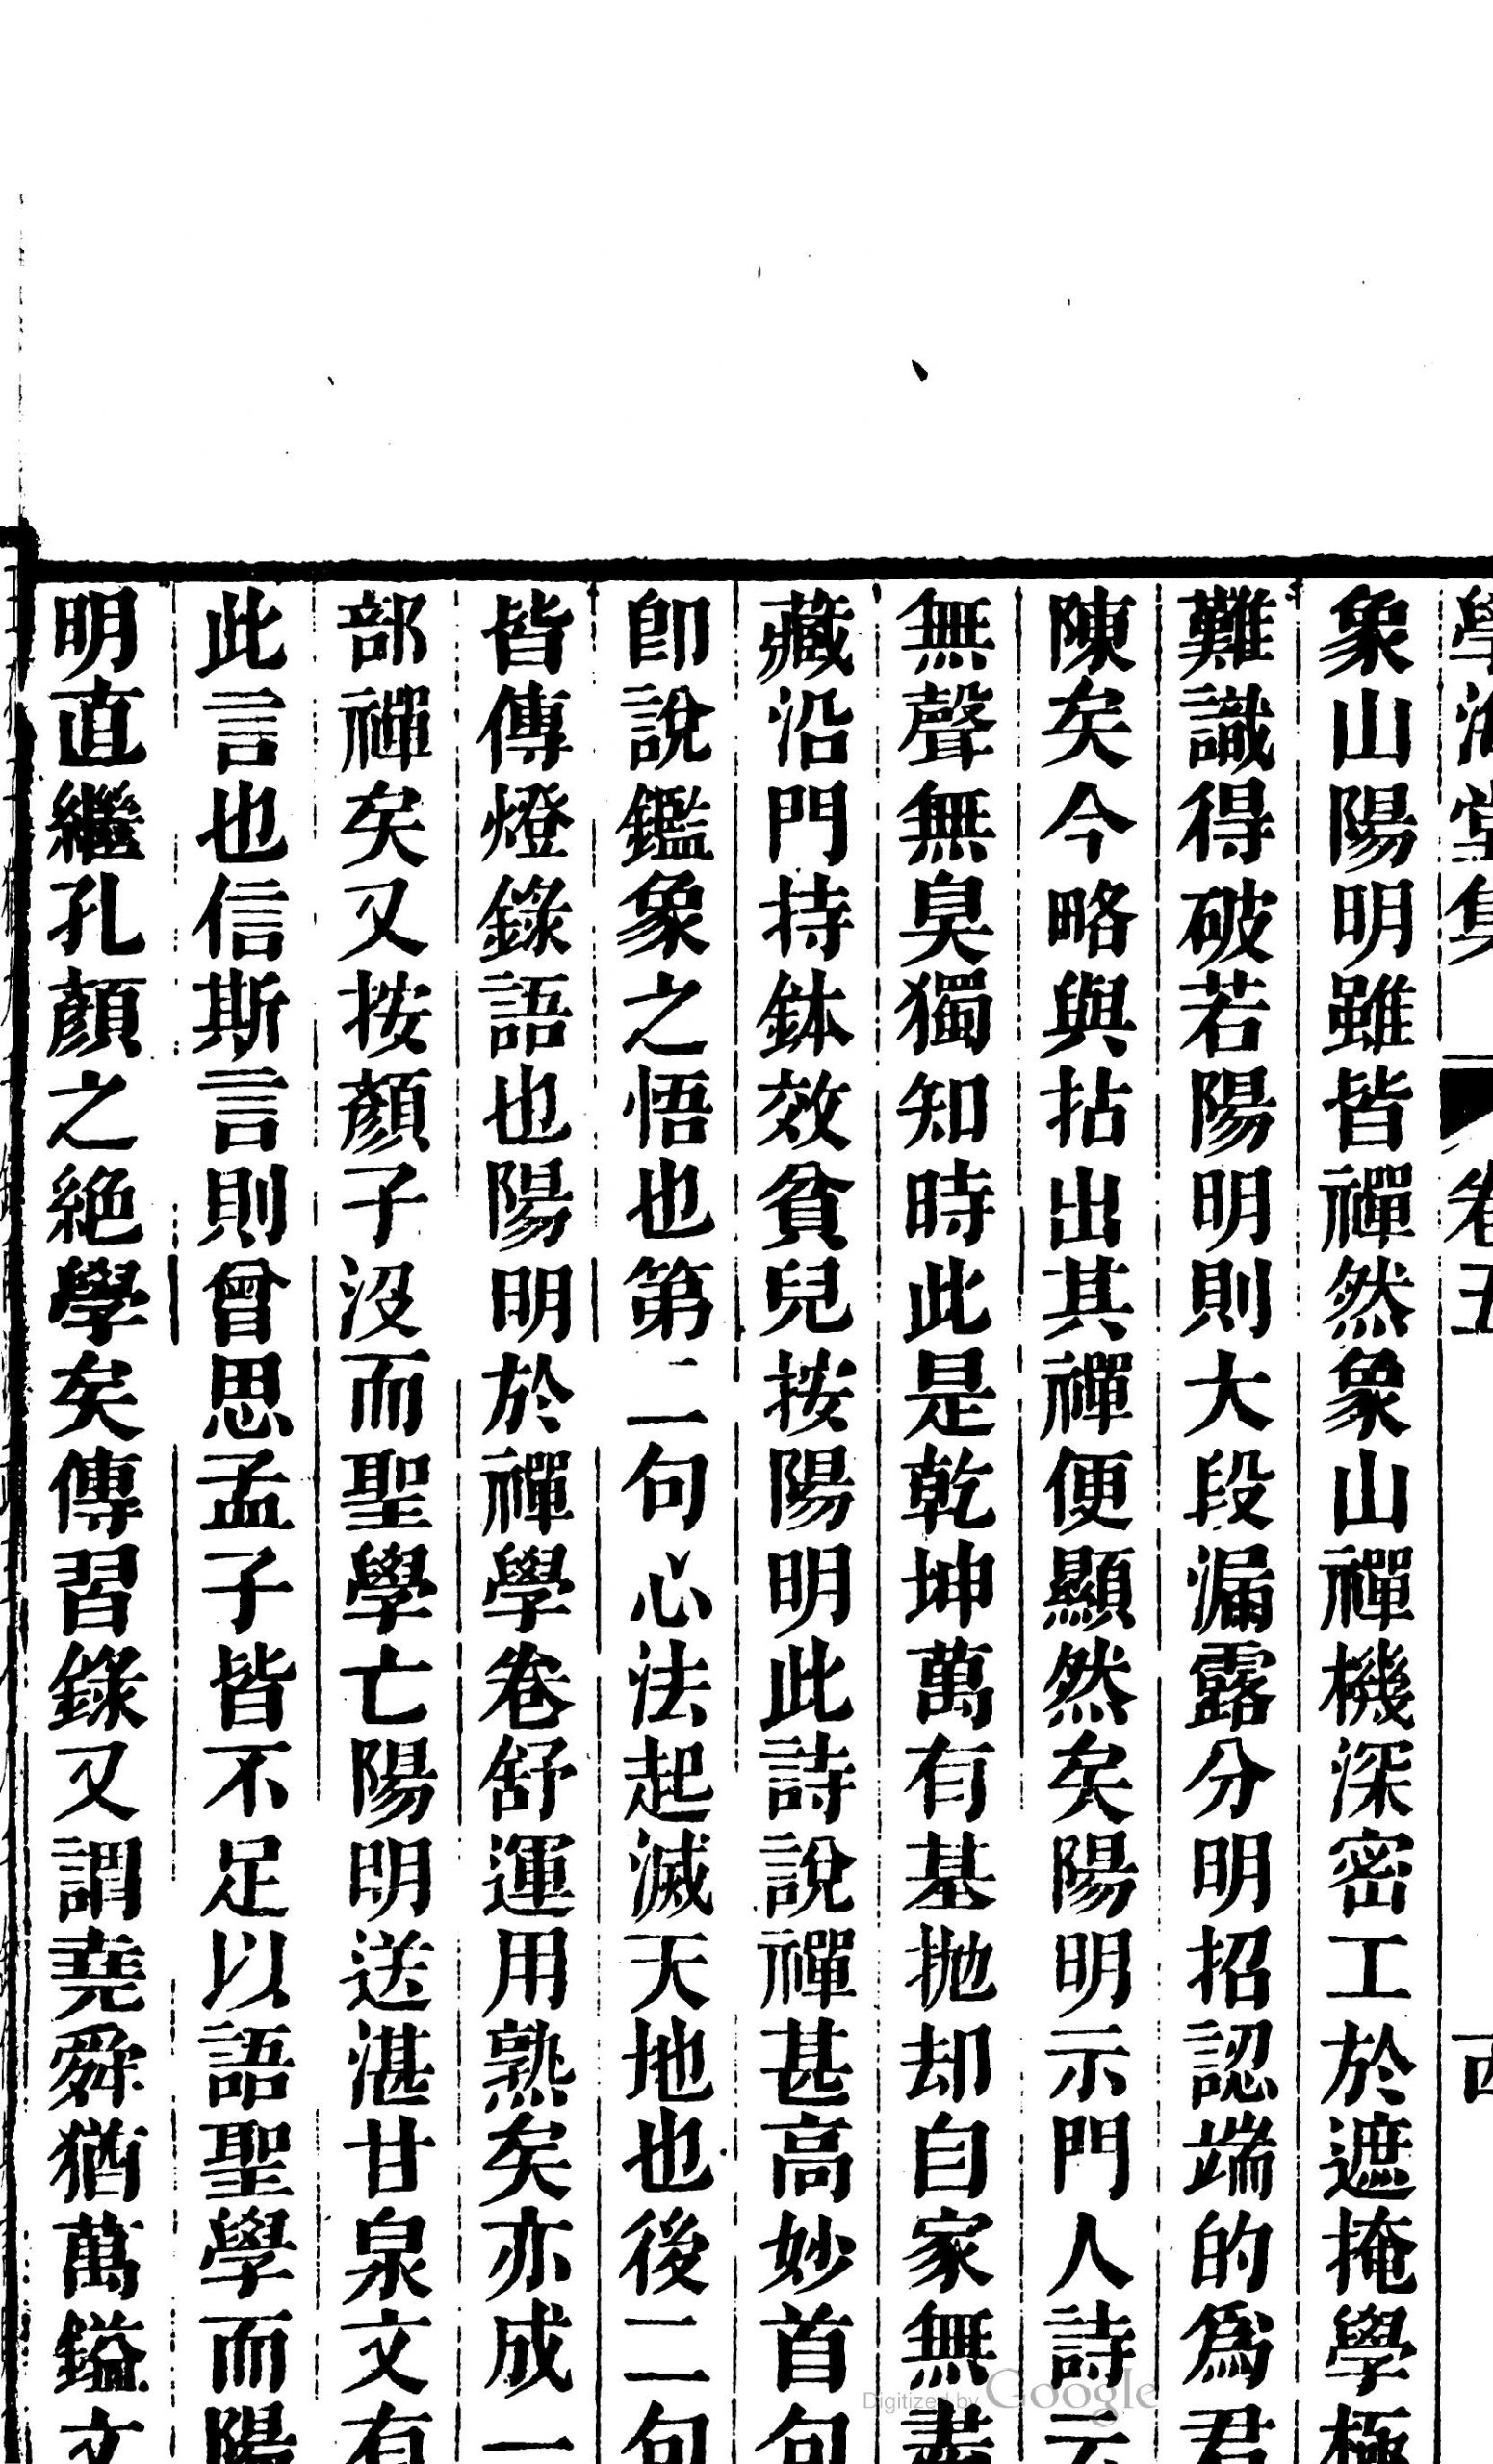 學海堂集 卷五
象山陽明雖皆禪然象山禪機深密工於遮掩學極
難識得破若陽明則大段漏露分明招認端的爲君
陳矣今略與拈出其禪便顯然矣陽明示門人詩云
無聲無臭獨知時此是乾坤萬有基拋却自家無盡
藏沿門持鉢效貧兒按陽明此詩說禪甚高妙首句
卽說鑑象之悟也第二句心法起滅天地也後二句
皆傳燈錄語也陽明於禪學卷舒運用熟矣亦成一
部禪矣又按顏子沒而聖學亡陽明送湛甘泉文有
此言也信斯言則曾思孟子皆不足以語聖學而陽
明直繼孔顏之絕學矣傳習錄又謂堯舜猶萬鎰文
Digitized by Google